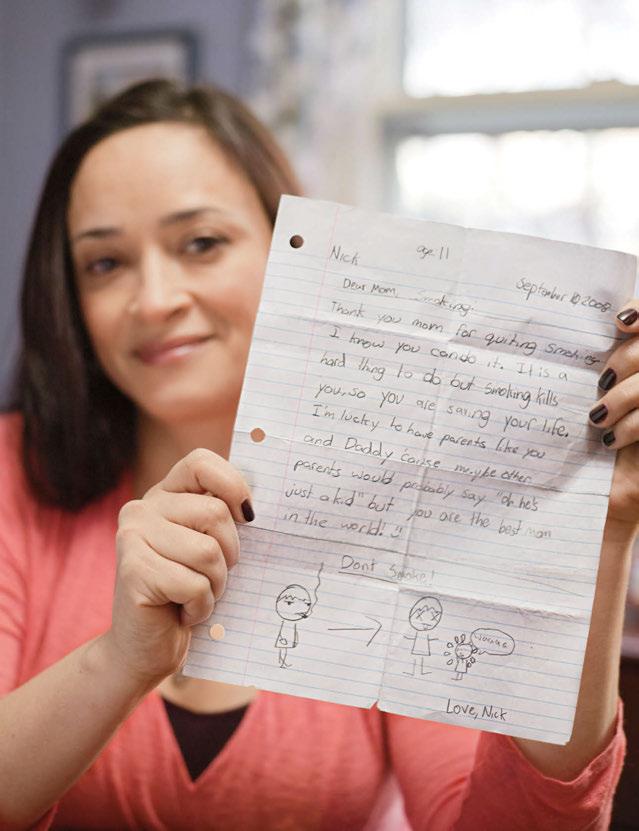 Nick age 11 September 10 2008
Dear Mom, Smoking:
Thank you mom for quiting smoking
I know you can do it. It is a
hard thing to do but smoking kills
you, so you are saving your life.
I'm lucky to have parents like you
and Daddy 'cause maybe other
parents would probably say "oh he's
just a kid" but you are the best mom
in the world!
Dont Smoke!
Love, Nick